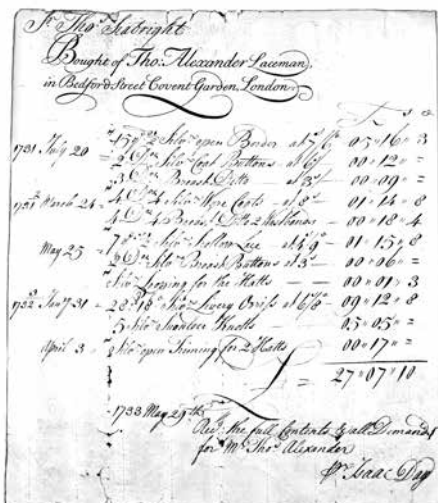 Sr. Thos. Seabright
Bought of Tho: Alexander Laceman,
in Bedford Street Covent Garden, London.
£ s d
1731 July 20 = 15 open Border at 7/6 05 " 16 " 3
2 Dn Silvr Coat Buttons at 6/ 00 " 12 " =
3 Dn Breast Ditto at 3/ 00 " 09 " =
March 24 = 4 Dn 4 Silvr More Coats at 8/ 01 " 14 " 8
4 Dn 4 Breast Ditto 2 00 " 18 " 4
May 25 = 7 Silvr Lace at 4/9 01 " 15 " 8
2 Dn Silvr Breast Buttons at 3/ 00 " 06 " =
Silvr for the Hatts 00 " 01 " 3
Jany 31 = 28 " 18 Silvr Livery at 6/8 09 " 12 " 8
5 Silvr Shoulder Knotts 05 " 05 " =
April 3 = Silvr open for 2 Hatts 00 " 17 " =
£ = 27 " 07 " 10
1733 May 29th
Recd. the full Contents & all Demands
for Mr. Thos. Alexander
pr Isaac Day